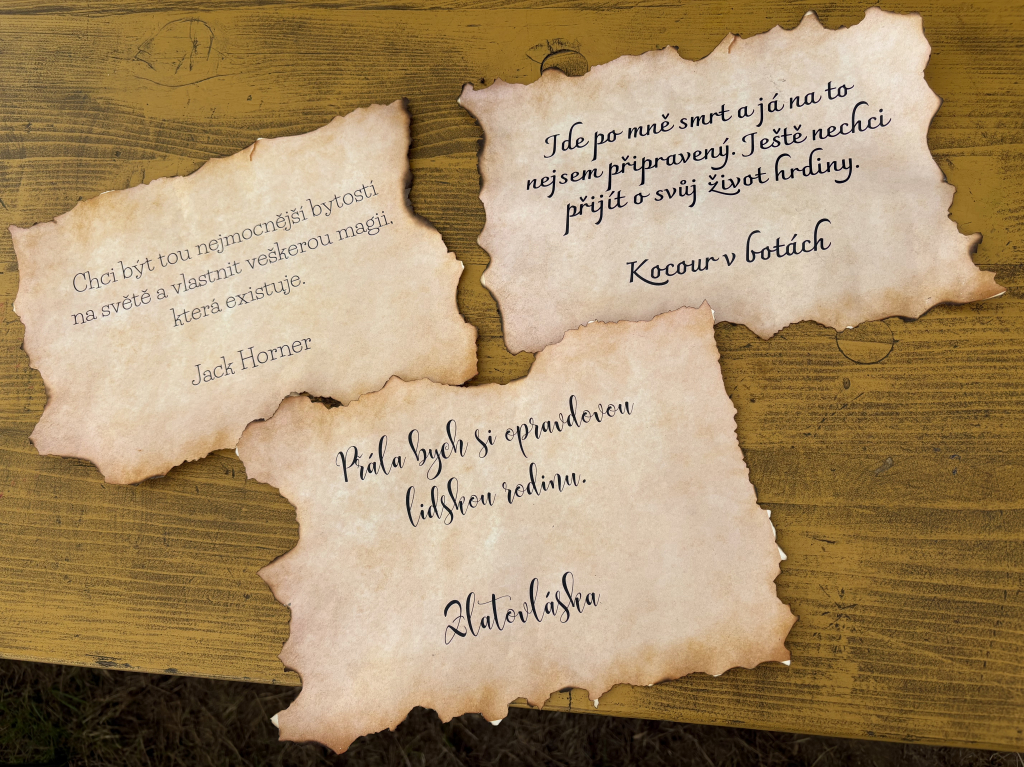 Chci být tou nejmocnější bytostí
na světě a vlastnit veškerou magii,
která existuje.
Jack Horner
Jde po mně smrt a já na to
nejsem připravený. Ještě nechci
přijít o svůj život hrdiny.
Kocour v botách
Přála bych si opravdovou
lidskou rodinu.
Zlatovláska